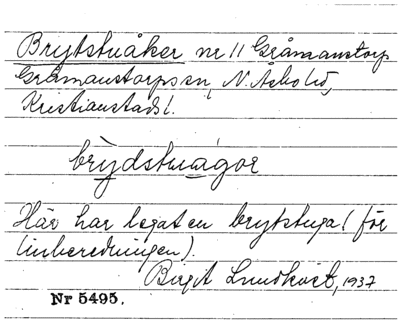 Brytstuåker nr 11 Gråmanstorp
Gråmanstorps sn, N. Åsbo hd,
Kristianstads l.
brydstuågor
Här har legat en brytstuga (för
linberedningen).
Birgit Lundkvist, 1937
Nr 5495.